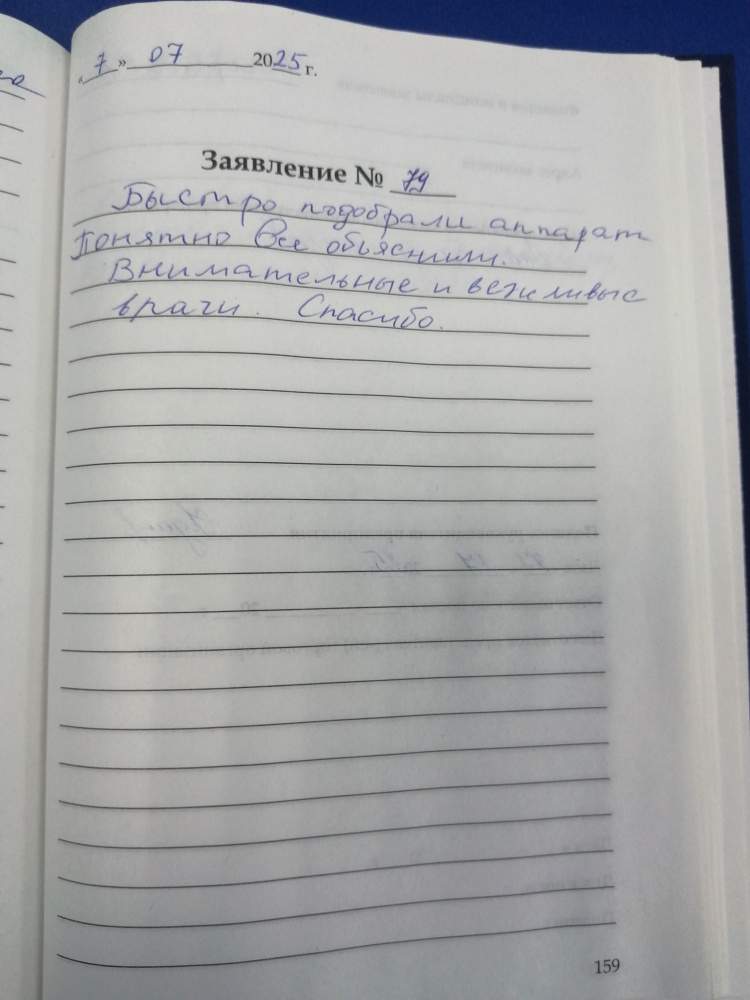 «7» 07 2025 г.
Заявление № 79
Быстро подобрали аппарат
Понятно Все обьяснили.
Внимательные и вежливые
врачи. Спасибо.
159